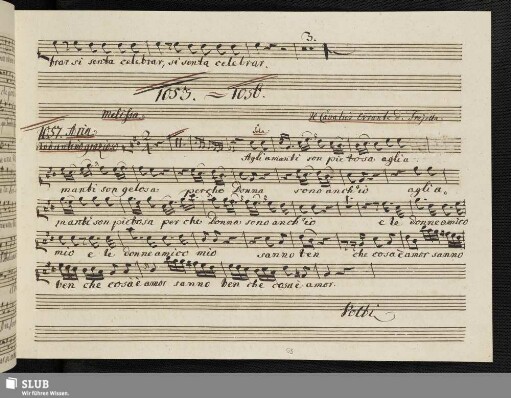 brar si senta celebrar, si senta celebrar.
3.
1053. = 1056.
Melissa
Il Cavalier Errante
1057. Aria
11.
Solo
Agli amanti son pietosa aglia
manti son gelosa perche Donna sono anch'io aglia
manti son pietosa per che donna sono anch'io e le donne amico
mio e le donne amico mio sanno ben che cosa è amor sanno
ben che cosa è amor sanno ben che cosa è amor.
Volti
SLUB
Wir führen Wissen.